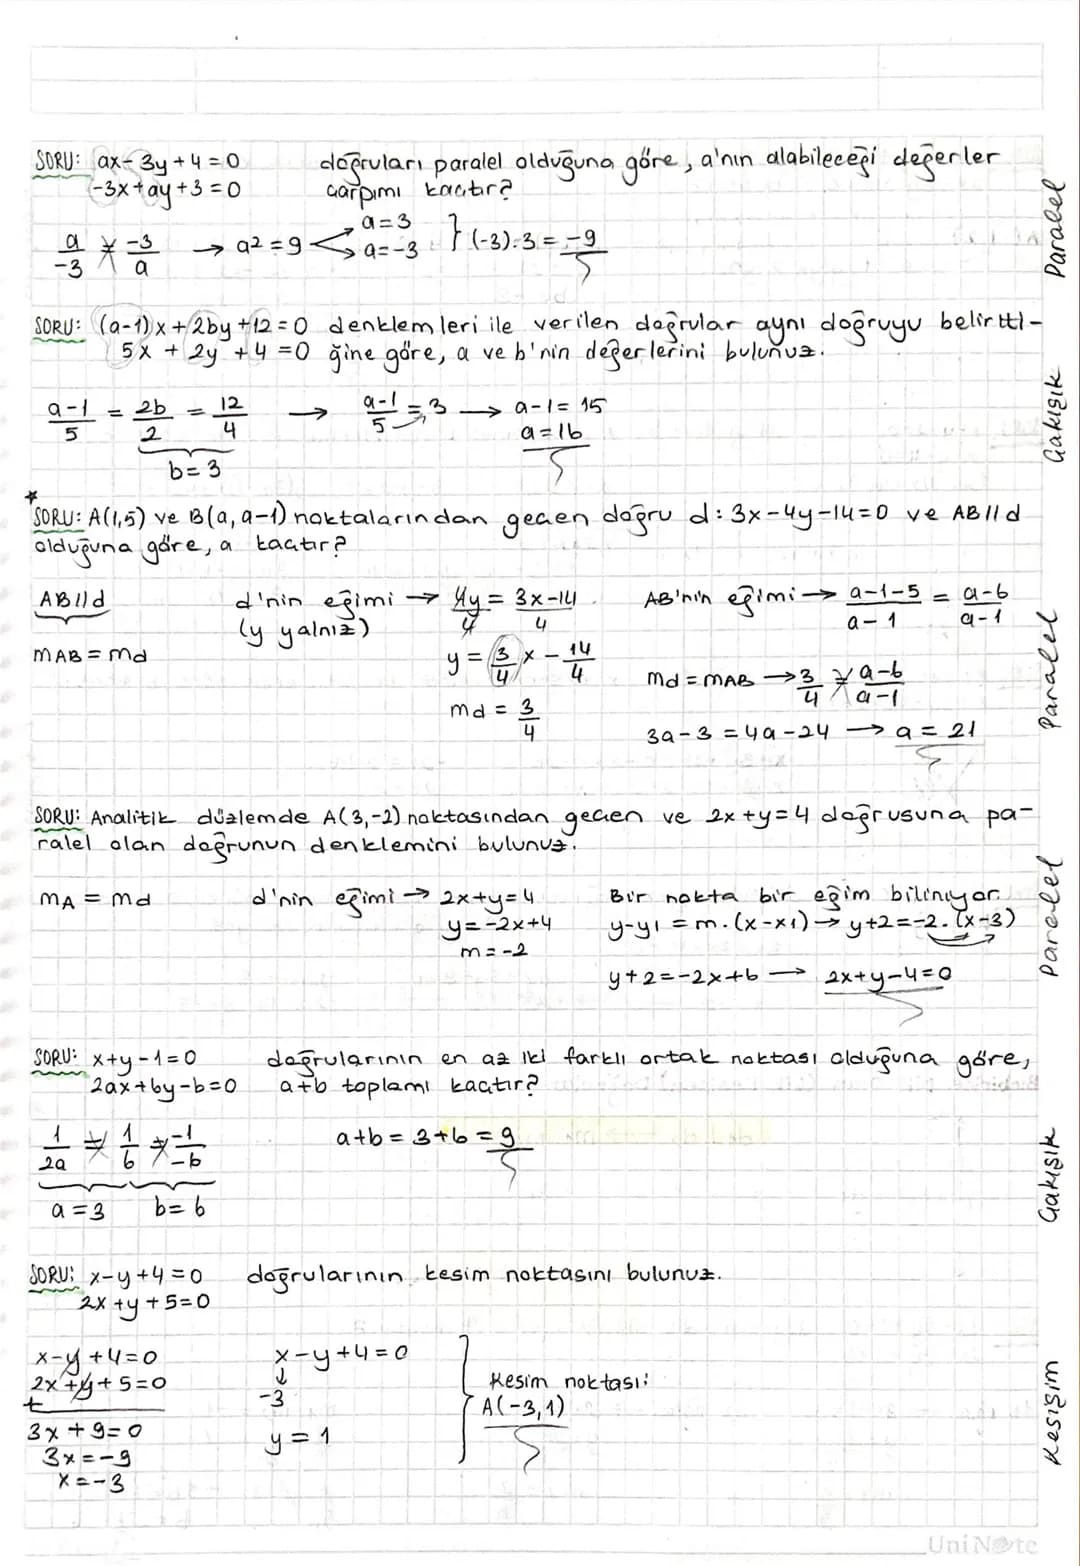 SORU: ax-3y+4=0 doğruları paralel olduğuna göre, a'nın alabileceği değerler
-3x+ay+3=0 çarpımı kaçtır?
a/-3 = -3/a → a²=9 a=3 a=-3 } (-3).3=-9
Paralel
SORU: (a-1)x+2by+12=0 denklemleri ile verilen doğrular aynı doğruyu belirtti-
5x+2y+4=0 ğine göre, a ve b'nin değerlerini bulunuz.
a-1/5 = 2b/2 = 12/4 → a-1/5=3 → a-1=15
a=16
b=3
Çakışık
SORU: A(1,5) ve B(a,a-1) noktalarından geçen doğru d: 3x-4y-14=0 ve AB//d
olduğuna göre, a kaçtır?
AB//d d'nin eğimi → 4y/4 = 3x-14/4 AB'nin eğimi → a-1-5/a-1 = a-6/a-1
(y yalnız)
mAB=md y = 3/4 x - 14/4 md=mAB → 3/4 = a-6/a-1
md = 3/4 3a-3=4a-24 → a=21
Paralel
SORU: Analitik düzlemde A(3,-2) noktasından geçen ve 2x+y=4 doğrusuna pa-
ralel olan doğrunun denklemini bulunuz.
mA = md d'nin eğimi → 2x+y=4 Bir nokta bir eğim biliniyor.
y=-2x+4 y-y1=m.(x-x1) → y+2=-2.(x-3)
m=-2
y+2=-2x+6 → 2x+y-4=0
Paralel
SORU: x+y-1=0 doğrularının en az iki farklı ortak noktası olduğuna göre,
2ax+6y-b=0 a+b toplamı kaçtır?
1/2a = 1/6 = -1/-b a+b=3+6=9
a=3 b=6
Çakışık
SORU: x-y+4=0 doğrularının kesim noktasını bulunuz.
2x+y+5=0
x-y+4=0 x-y+4=0
2x+y+5=0 ↓
+ -3
3x+9=0 y=1
3x=-9
x=-3
Kesim noktası:
A(-3,1)
Kesişim
UniNote